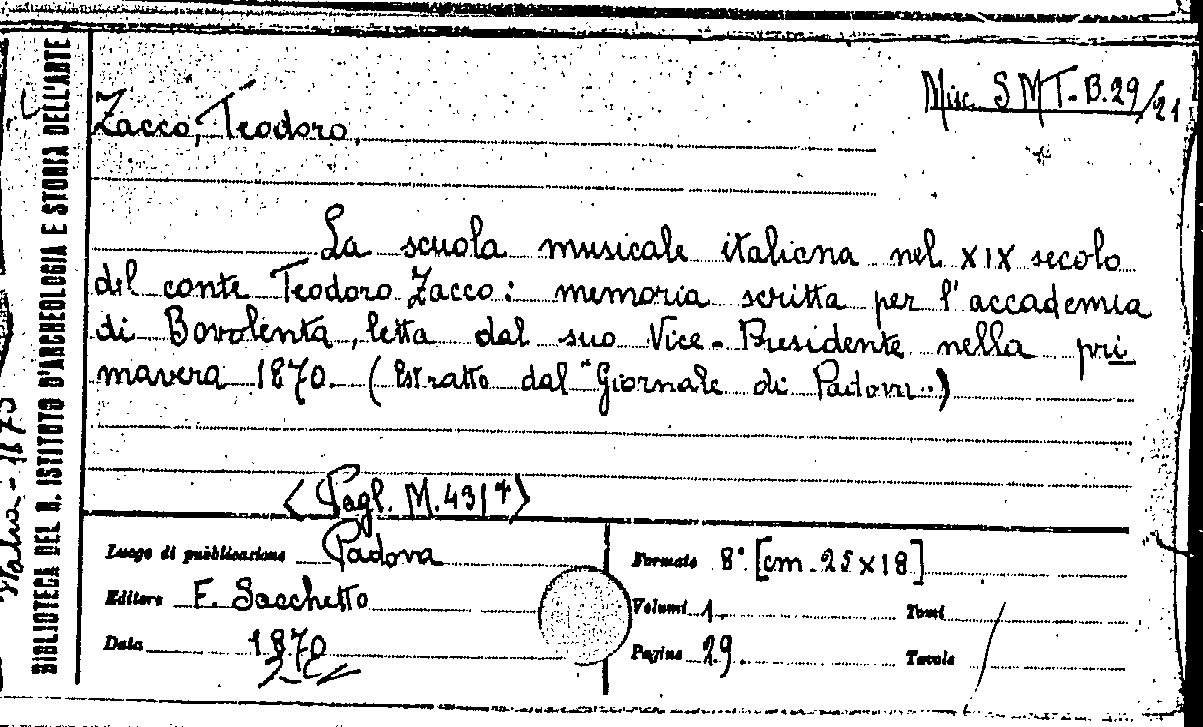 BIBLIOTECA DEL R. ISTITUTO D'ARCHEOLOGIA E STORIA DELL'ARTE
Misc. SMT. B.29/21
Zacco, Teodoro,
La scuola musicale italiana nel XIX secolo
del conte Teodoro Zacco: memoria scritta per l'accademia
di Bovolenta, letta dal suo Vice-Presidente nella pri
mavera 1870. (Estratto dal "Giornale di Padova")
<Pagl. M.431⁷>
Luogo di pubblicazione Padova
Editore F. Sacchetto
Data 1870
Formato 8° [cm. 25x18]
Volumi 1. Tomi
Pagine 29. Tavole